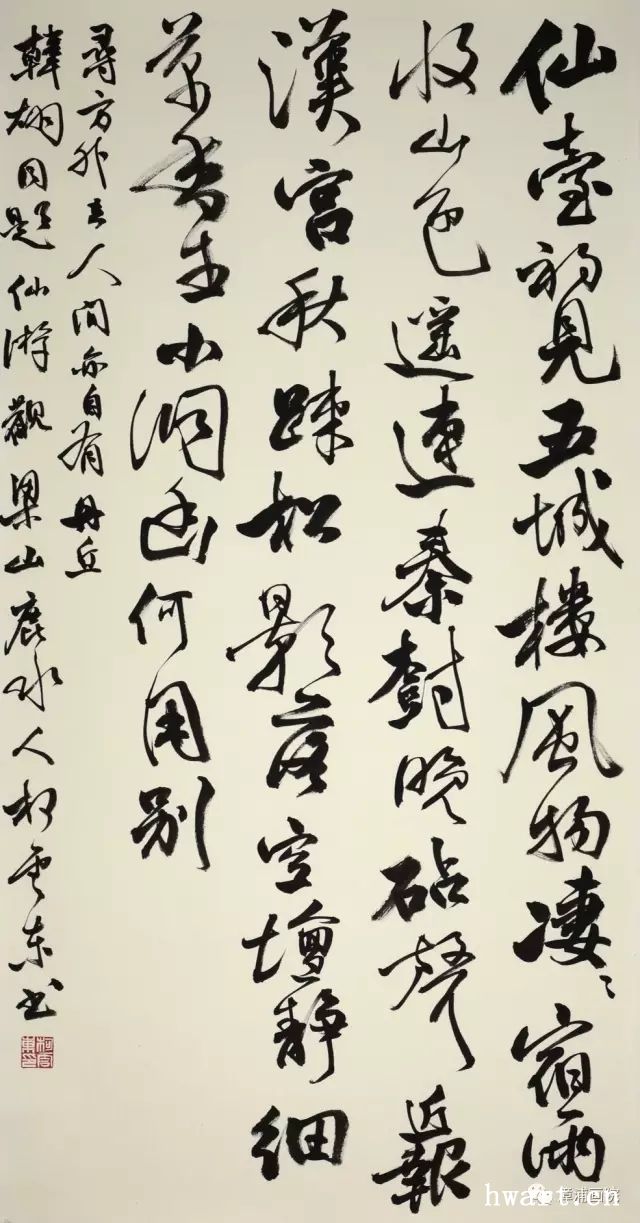 仙臺初見五城樓風物凄〻宿雨
收山色遥連秦樹晚砧聲近報
漢宮秋踈松影落空壇静細
草香生小洞幽何用别
尋方外去人間亦自有丹丘
韓翃同題仙游觀梁山鹿水人柯雲東书
漳浦画院
hwart.cn